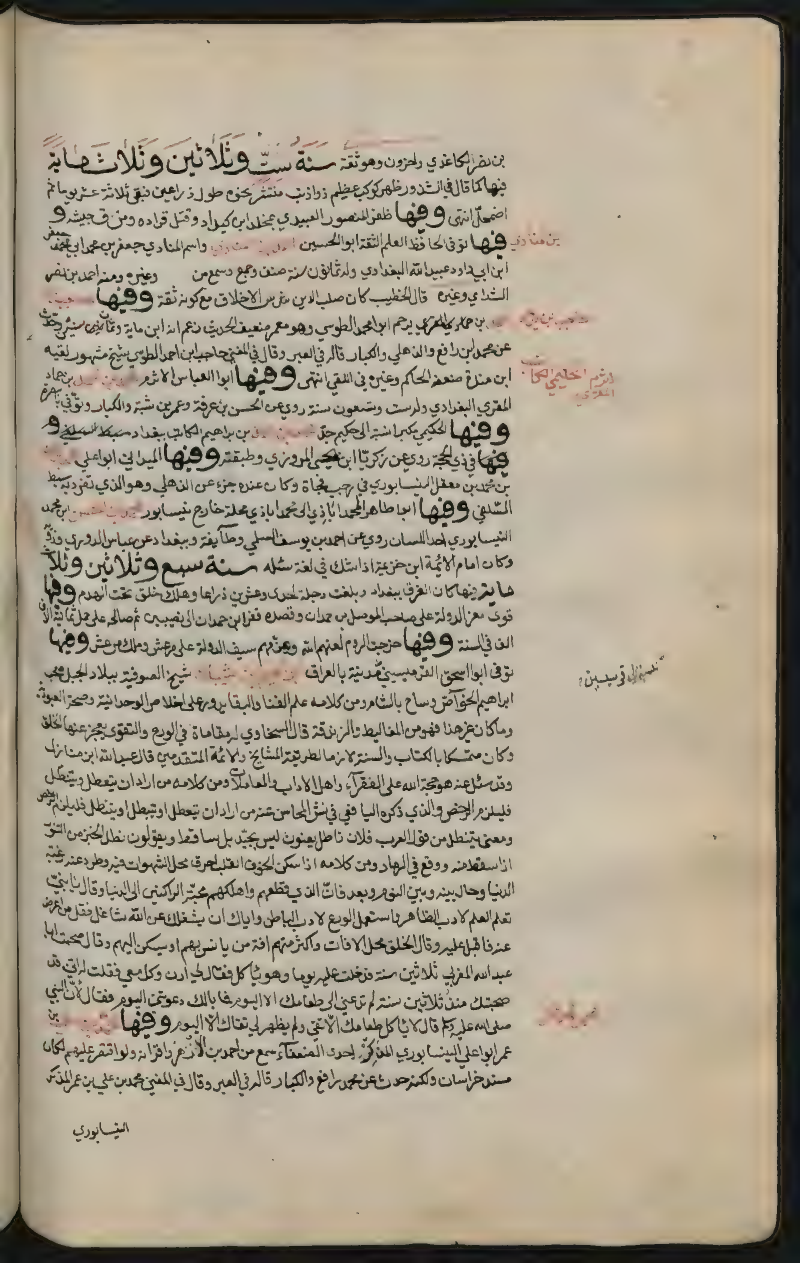 بن نصر الكاغدي واخرون وهو ثقة سنة ست وثلاثين وثلاث ماية
فيها كما قال في الشذور ظهر كوكب عظيم ذو اذناب منتشر نحوه طول ذراعين فبقى ثلاثة عشر يوما ثم
اضمحل انتهى وفيها ظفر المنصور العبيدي بمخلد ابن كيداد وقتل قواده ومزق جيشه و
فيها توفى الحافظ العلم الثقة ابو الحسين واسم المنادي جعفر بن محمد
ابن ابي داود عبيد الله البغدادي وله ثمانون سنة صنف وجمع وسمع من وغيره ومنه احمد بن نصر
الشذاي وغيره قال الخطيب كان صلب الدين شرس الاخلاق مع كونه ثقة وفيها
ابو محمد الطوسي وهو معمر ضعيف الحديث زعم انه ابن ماية وثمان سنين وحدث
عن محمد بن رافع والذهلي والكبار قاله في العبر وقال في المغني حاجب ابن احمد الطوسي شيخ مشهور لقيه
ابن مندة ضعفه الحاكم وغيره في اللقي انتهى وفيها ابو العباس الاثرم بن حماد
المقري البغدادي وله ست وتسعون سنة روى عن الحسن بن عرفة وعمر بن شبة والكبار وتوفى
وفيها الحكيمي مكبرا نسبة الى حكيم جد بن ابراهيم الكاتب ببغداد و
فيها في ذي الحجة روى عن زكريا ابن يحيى المروزي وطبقته وفيها الميداني ابو علي
بن محمد بن معقل النيسابوري في رجب فجاة وكان عنده جزء عن الذهلي وهو الذي تفرد به سبط
السلفي وفيها ابو طاهر المحمداباذي الى محمداباذي محلة خارج نيسابور ابن محمد
النيسابوري احد اللسان روى عن احمد بن يوسف السلمي وطايفة وببغداد عن عباس الدوري وذويه
وكان امام الائمة ابن خزيمة اذا شك في لغة سئله سنة سبع وثلاثين وثلا
ثماية فيها كان الغرق ببغداد وبلغت دجلة احدى وعشرين ذراعا وهلك خلق تحت الهدم وفيها
قوى معز الدولة على صاحب الموصل بن حمدان وقصده ففر ابن حمدان الى نصيبين ثم صالحه على حمل ثمانية الاف
الف في السنة وفيها خرجت الروم لعنهم الله وهزمهم سيف الدولة على مرعش وملك مرعش وفيها
توفى ابو اسحق القرميسيني مدينة بالعراق شيخ الصوفية ببلاد الجبل صحب
ابراهيم الخواص وساح بالشام ومن كلامه علم الفنا والبقا يدور على اخلاص الوحدانية وصحة العبودية
وما كان غير هذا فهو من المغاليط والزندقة قال السخاوي له مقامات في الورع والتقوى يعجز عنها الخلق
وكان متمسكا بالكتاب والسنة لازما لطريقة المشايخ والائمة المتقدمين قال عبد الله ابن منازل
وقد سئل عنه هو حجة الله على الفقرآء واهل الاداب والمعاملات ومن كلامه من اراد ان يتعطل ويتبطل
فليلزم الرخص والذي ذكره اليافعي في نشر المحاسن عنه من اراد ان يتعطل او يتبطل او يتنطل فليلزم الرخص
ومعنى يتنطل من قول العرب فلان ناطل يعنون ليس بجيد بل ساقط ويقولون نطل الخبز من التنور
اذا سقط منه ووقع في الرماد ومن كلامه اذا سكن الخوف القلب احرق محل الشهوات فيه وطرد عنه رغبة
الدنيا وحال بينه وبين النوم وبعد فان الذي قطعهم واهلكهم محبة الراكنين الى الدنيا وقال يا بني
تعلم العلم لادب الظاهر واستعمل الورع لادب الباطن واياك ان يشغلك عن الله شاغل فقل من اعرض
عنه فاقبل عليه وقال الخلق محل الافات واكثر منهم افة من يانس بهم او يسكن اليهم وقال صحبت ابا
عبد الله المغربي ثلاثين سنة فدخلت عليه يوما وهو ياكل فقال لي ادن وكل معي فقلت له اني قد
صحبتك منذ ثلاثين سنة لم تدعني الى طعامك الا اليوم فما بالك دعوتني اليوم فقال لان النبي
صلى الله عليه وسلم قال لا ياكل طعامك الا تقي ولم يظهر لي تقاك الا اليوم وفيها بن
عمر ابو علي النيسابوري المذكر احد الضعفاء سمع من احمد بن الازهر واقرانه ولو اقتصر عليهم لكان
مسند خراسان ولكنه حدث عن محمد بن رافع والكبار قاله في العبر وقال في المغني محمد بن علي بن عمر المذكر
النيسابوري